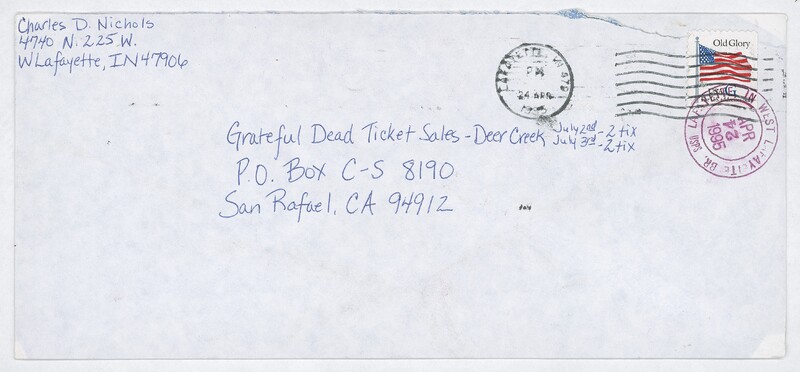 Charles D. Nichols
4740 N. 225 W.
W Lafayette, IN 47906
LAFAYETTE, IN 479
PM
24 APR
1995
Old Glory
LAFAYETTE IN WEST LAFAYETTE BR.
APR
24
1995
Grateful Dead Ticket Sales - Deer Creek July 2nd - 2 tix
July 3rd - 2 tix
P.O. Box C-S 8190
San Rafael, CA 94912